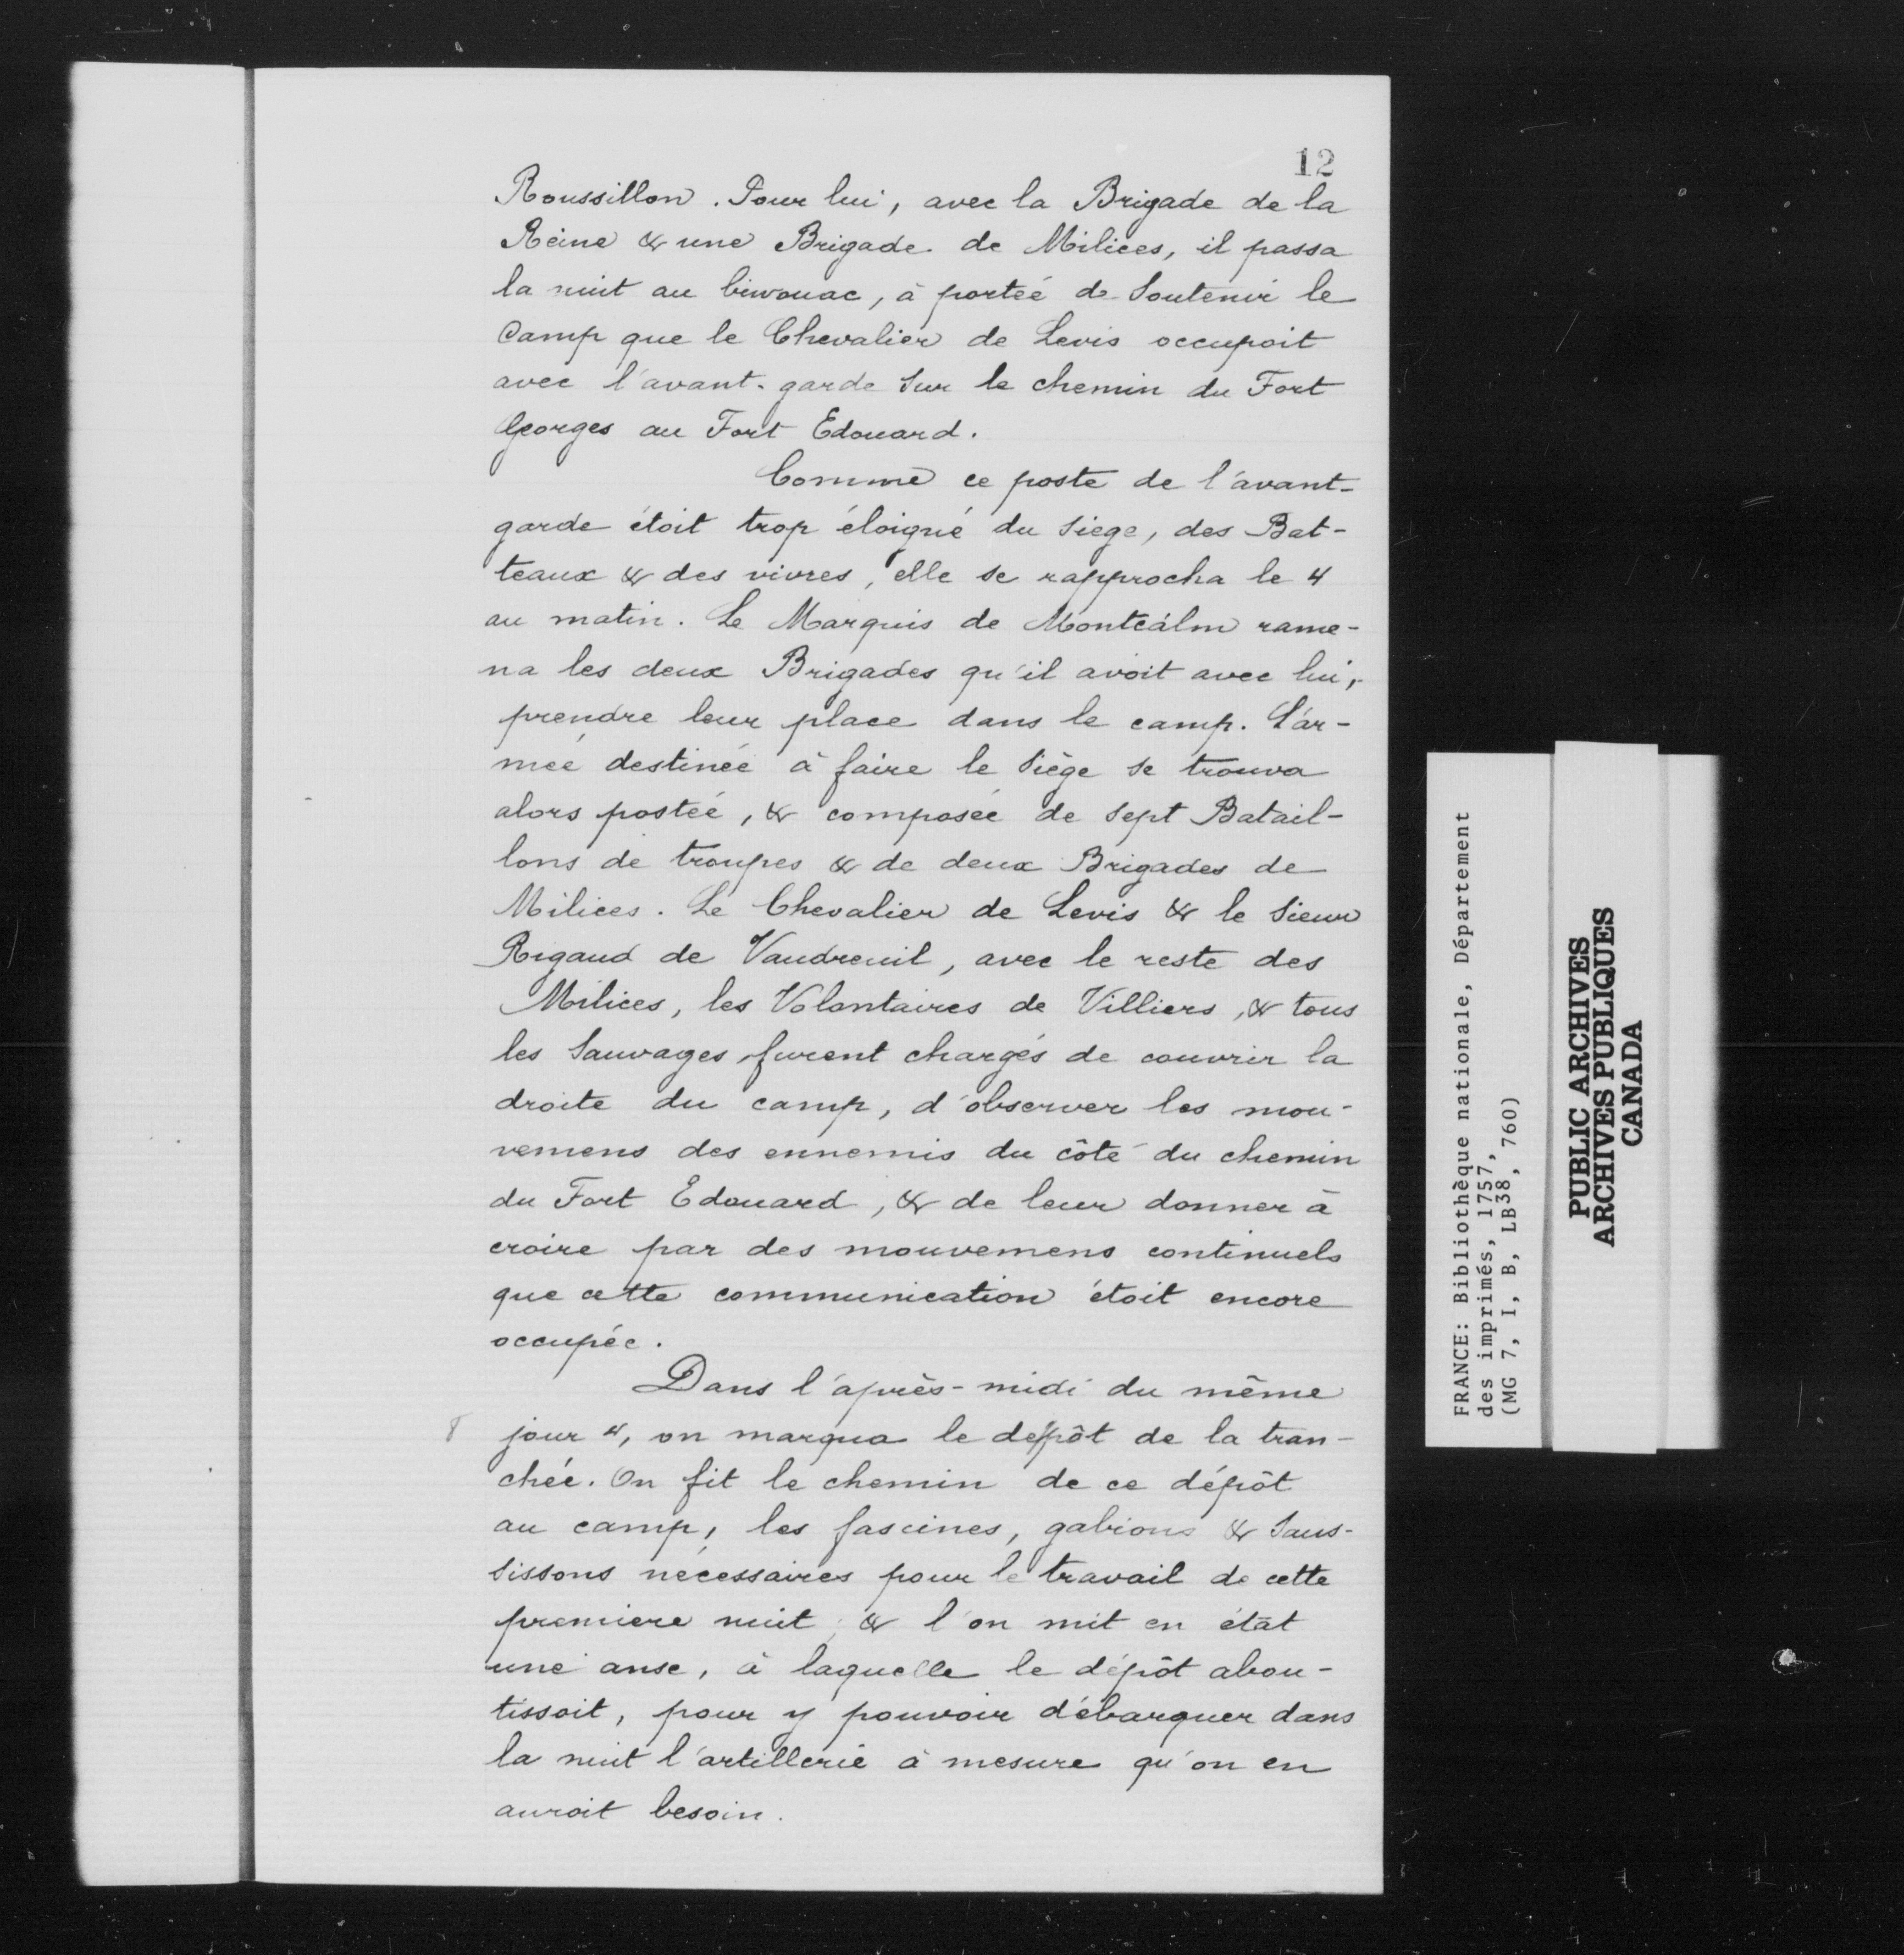 12
Roussillon. Pour lui, avec la Brigade de la
Reine & une Brigade de Milices, il passa
la nuit au bivouac, à porteé de Soutenir le
Camp que le Chevalier de Levis occupoit
avec l'avant-garde Sur le chemin du Fort
Georges au Fort Edouard.
Comme ce poste de l'avant-
garde étoit trop éloigné du Siege, des Bat-
teaux & des vivres, elle se rapprocha le 4
au matin. Le Marquis de Montcalm rame-
na les deux Brigades qu'il avoit avec lui,
prendre leur place dans le camp. L'ar-
meé destineé à faire le Siège se trouva
alors posteé, & composeé de Sept Batail-
lons de troupes & de deux Brigades de
Milices. Le Chevalier de Levis & le Sieur
Rigaud de Vaudreuil, avec le reste des
Milices, les Volontaires de Villiers, & tous
les Sauvages furent chargés de couvrir la
droite du camp, d'observer les mou-
vemens des ennemis du côté du chemin
du Fort Edouard, & de leur donner à
croire par des mouvemens continuels
que cette communication étoit encore
occupée.
Dans l'après-midi du même
8 jour 4, on marqua le depôt de la tran-
chée. On fit le chemin de ce dépôt
au camp, les fascines, gabions & Saus-
sissons nécessaires pour le travail de cette
premiere nuit, & l'on mit en état
une anse, à laquelle le dépôt abou-
tissoit, pour y pouvoir débarquer dans
la nuit l'artillerie à mesure qu'on en
auroit besoin.
FRANCE: Bibliothèque nationale, Département
des imprimés, 1757,
(MG 7, I, B, LB38, 760)
PUBLIC ARCHIVES
ARCHIVES PUBLIQUES
CANADA